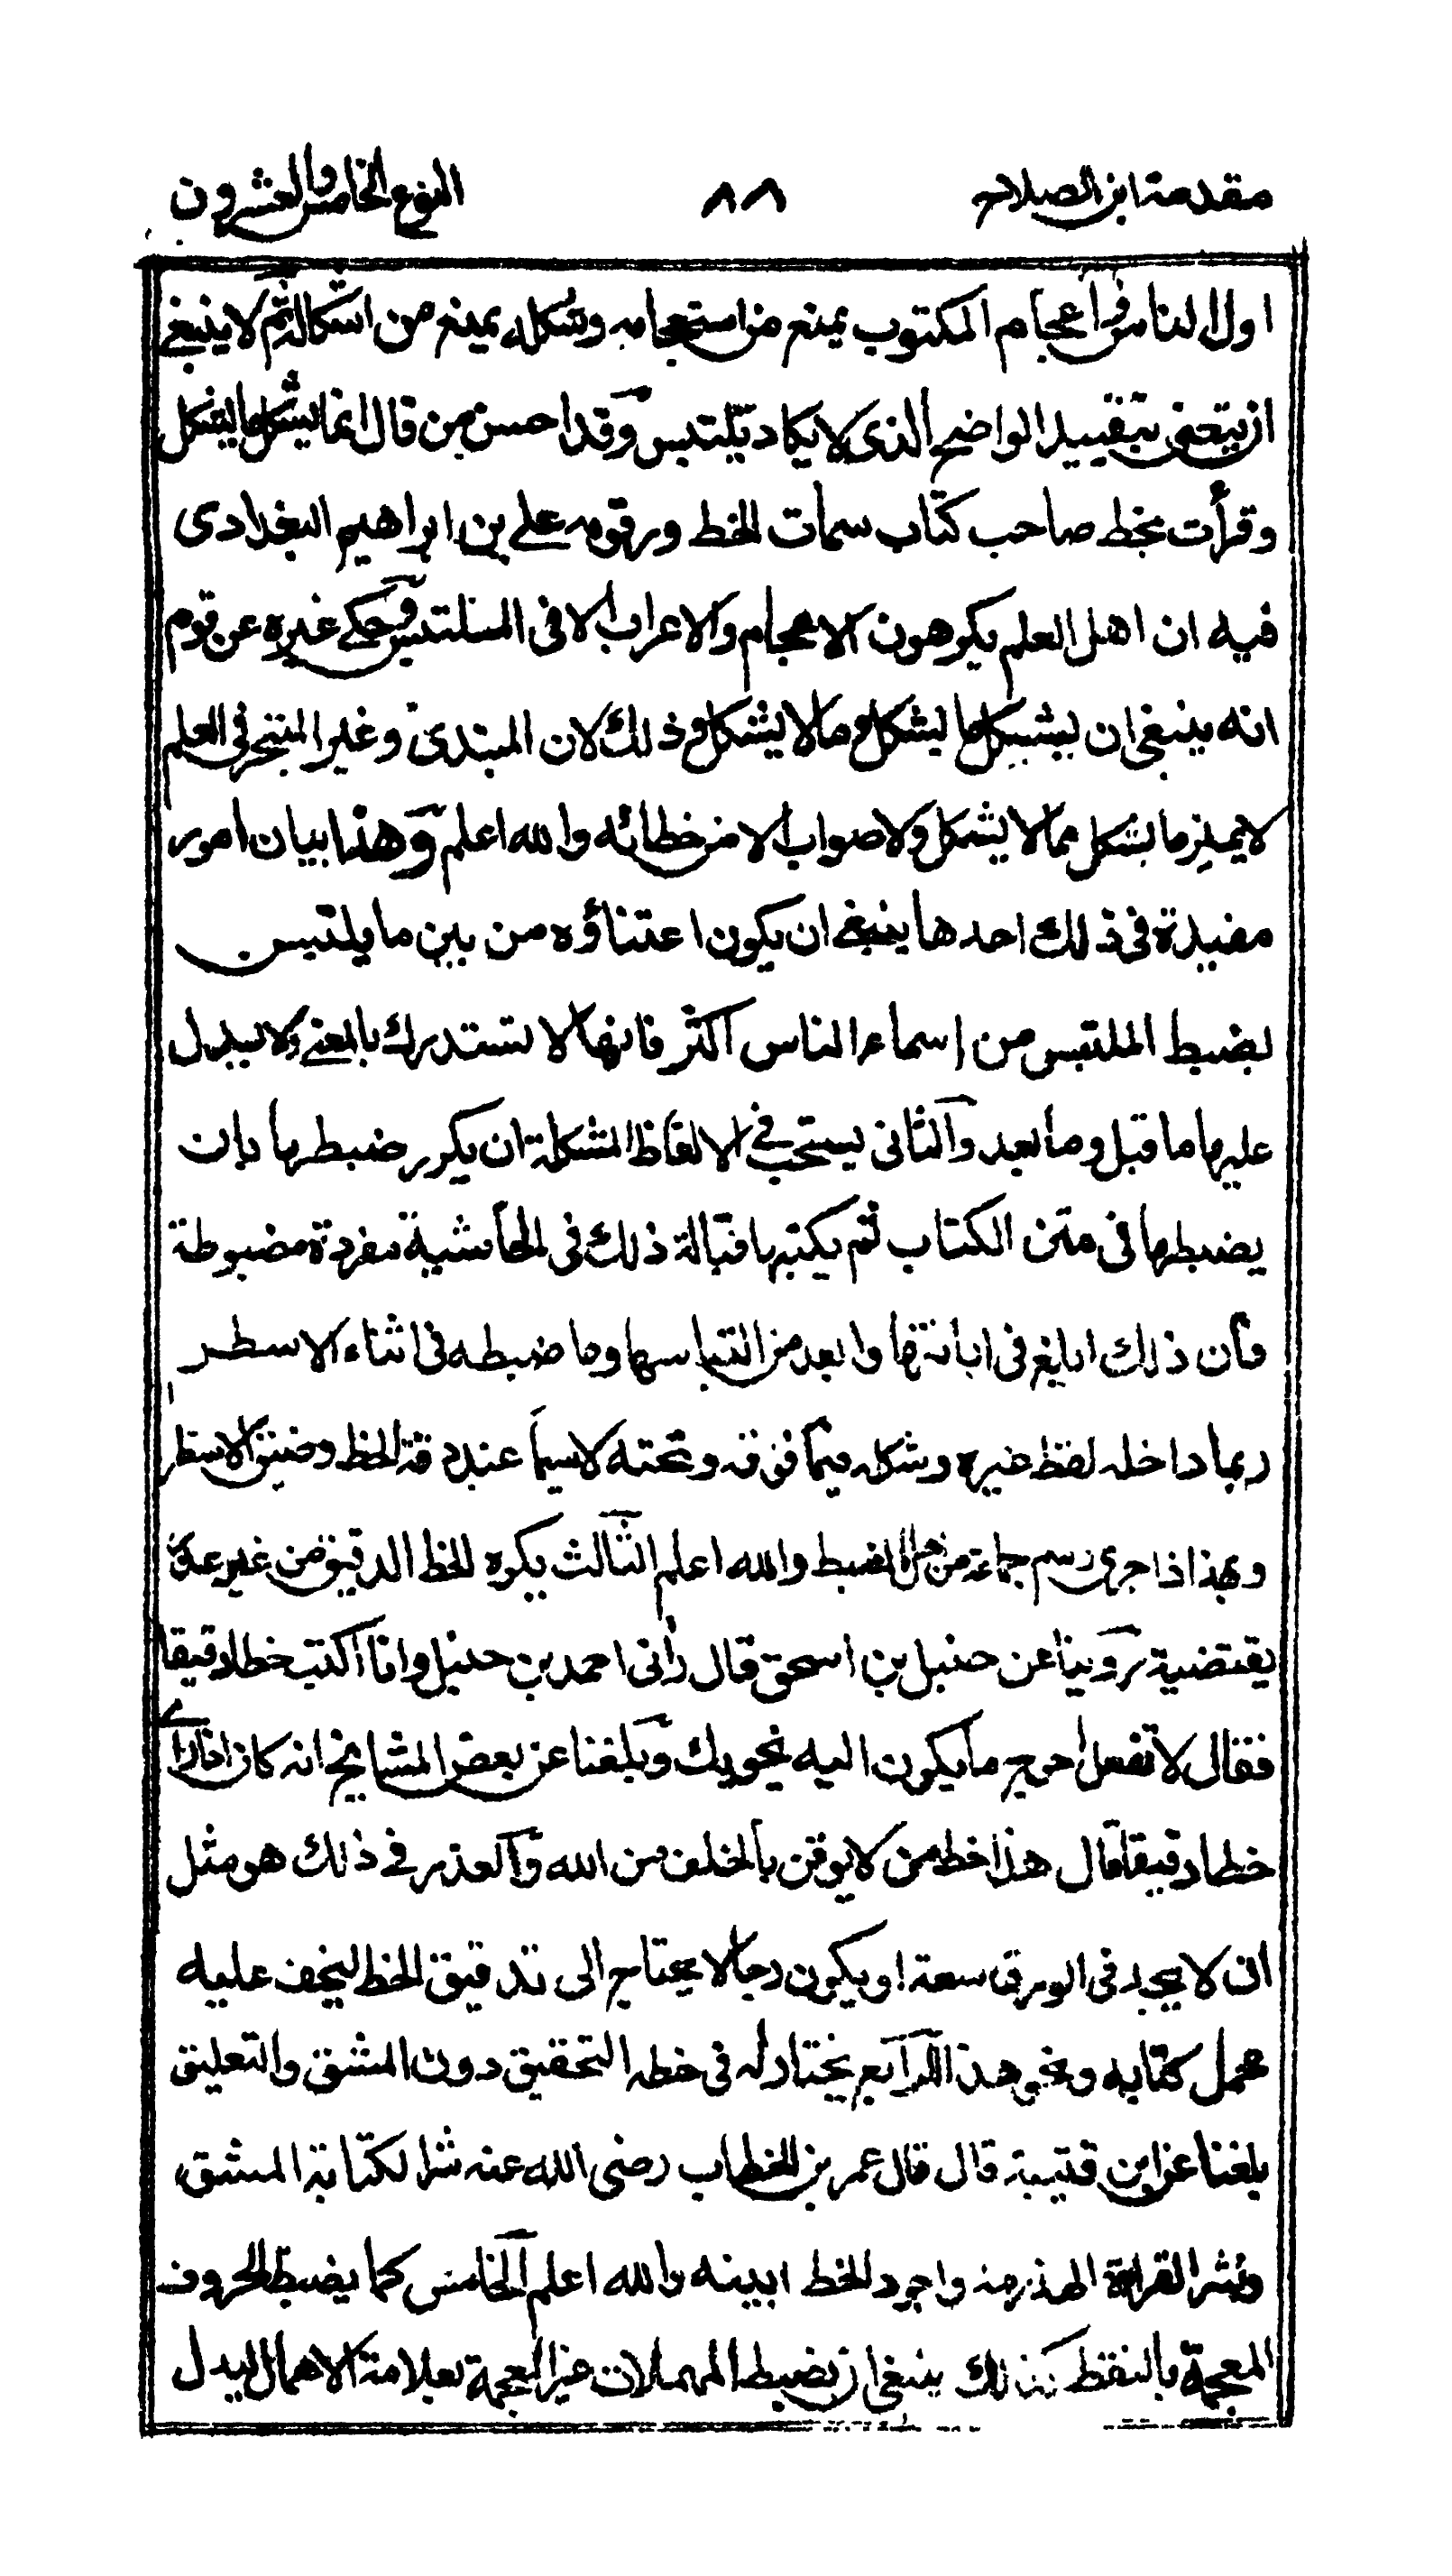 مقدمة ابن الصلاح ٨٨ النوع الخامس والعشرون
اول الناس واعجام المكتوب يمنع من استعجامه وشكله يمنع من اشكاله ثم لا ينبغي
ان يتعنى بتقييد الواضح الذى لا يكاد يلتبس وقد احسن من قال انما يشكل ما يشكل
وقرأت بخط صاحب كتاب سمات الخط ورقومه علي بن ابراهيم البغدادى
فيه ان اهل العلم يكرهون الاعجام والاعراب الا فى الملتبس وحكى غيره عن قوم
انه ينبغي ان يشكل ما يشكل وما لا يشكل وذلك لان المبتدئ وغير المتبحر فى العلم
لا يميز ما يشكل مما لا يشكل ولا صواب الا من خطائه والله اعلم وهذا بيان امور
مفيدة فى ذلك احدها ينبغي ان يكون اعتناؤه من بين ما يلتبس
بضبط الملتبس من اسماء الناس اكثر فانها لا تستدرك بالمعنى ولا يستدل
عليها ما قبل وما بعد والثانى يستحب في الالفاظ المشكلة ان يكرر ضبطها بان
يضبطها فى متن الكتاب ثم يكتبها قبالة ذلك فى الحاشية مفردة مضبوطة
فان ذلك ابلغ فى ابانتها وابعد من التباسها وما ضبطه فى اثناء الاسطر
ربما داخله لفظ غيره وشكله مما فوقه وتحته لا سيما عند دقة الخط وضيق الاسطر
وبهذا اذا جرى رسم جماعة من اهل الضبط والله اعلم الثالث يكره الخط الدقيق من غير عذر
يقتضيه روينا عن حنبل بن اسحق قال رأنى احمد بن حنبل وانا اكتب خطا دقيقا
فقال لا تفعل احوج ما يكون اليه يخونك وبلغنا عن بعض المشايخ انه كان اذا رأى
خطا دقيقا قال هذا خط من لا يوقن بالخلف من الله والعذر في ذلك هو مثل
ان لا يجد فى الورق سعة او يكون رحالا يحتاج الى تدقيق الخط ليخف عليه
محمل كتابه ونحو هذا الرابع يختار له فى خطه التحقيق دون المشق والتعليق
بلغنا عن ابن قتيبة قال قال عمر بن الخطاب رضى الله عنه شر الكتابة المشق
وشر القراءة الهذرمة واجود الخط ابينه والله اعلم الخامس كما يضبط الحروف
المعجمة بالنقط كذلك ينبغي ان يضبط المهملات غير المعجمة بعلامة الاهمال ليدل